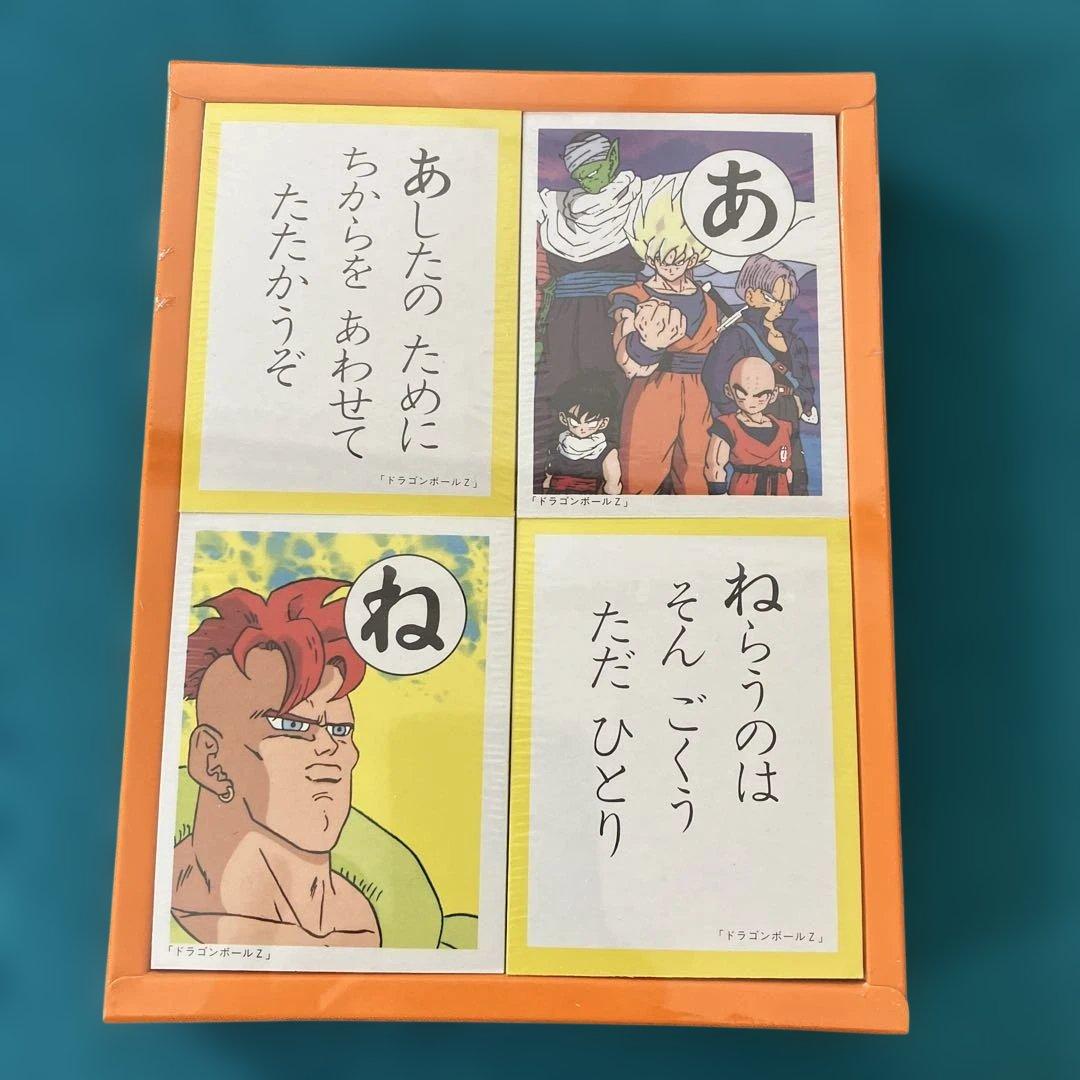 あしたの ために
ちからを あわせて
たたかうぞ
「ドラゴンボールZ」
あ
「ドラゴンボールZ」
ね
「ドラゴンボールZ」
ねらうのは
そん ごくう
ただ ひとり
「ドラゴンボールZ」